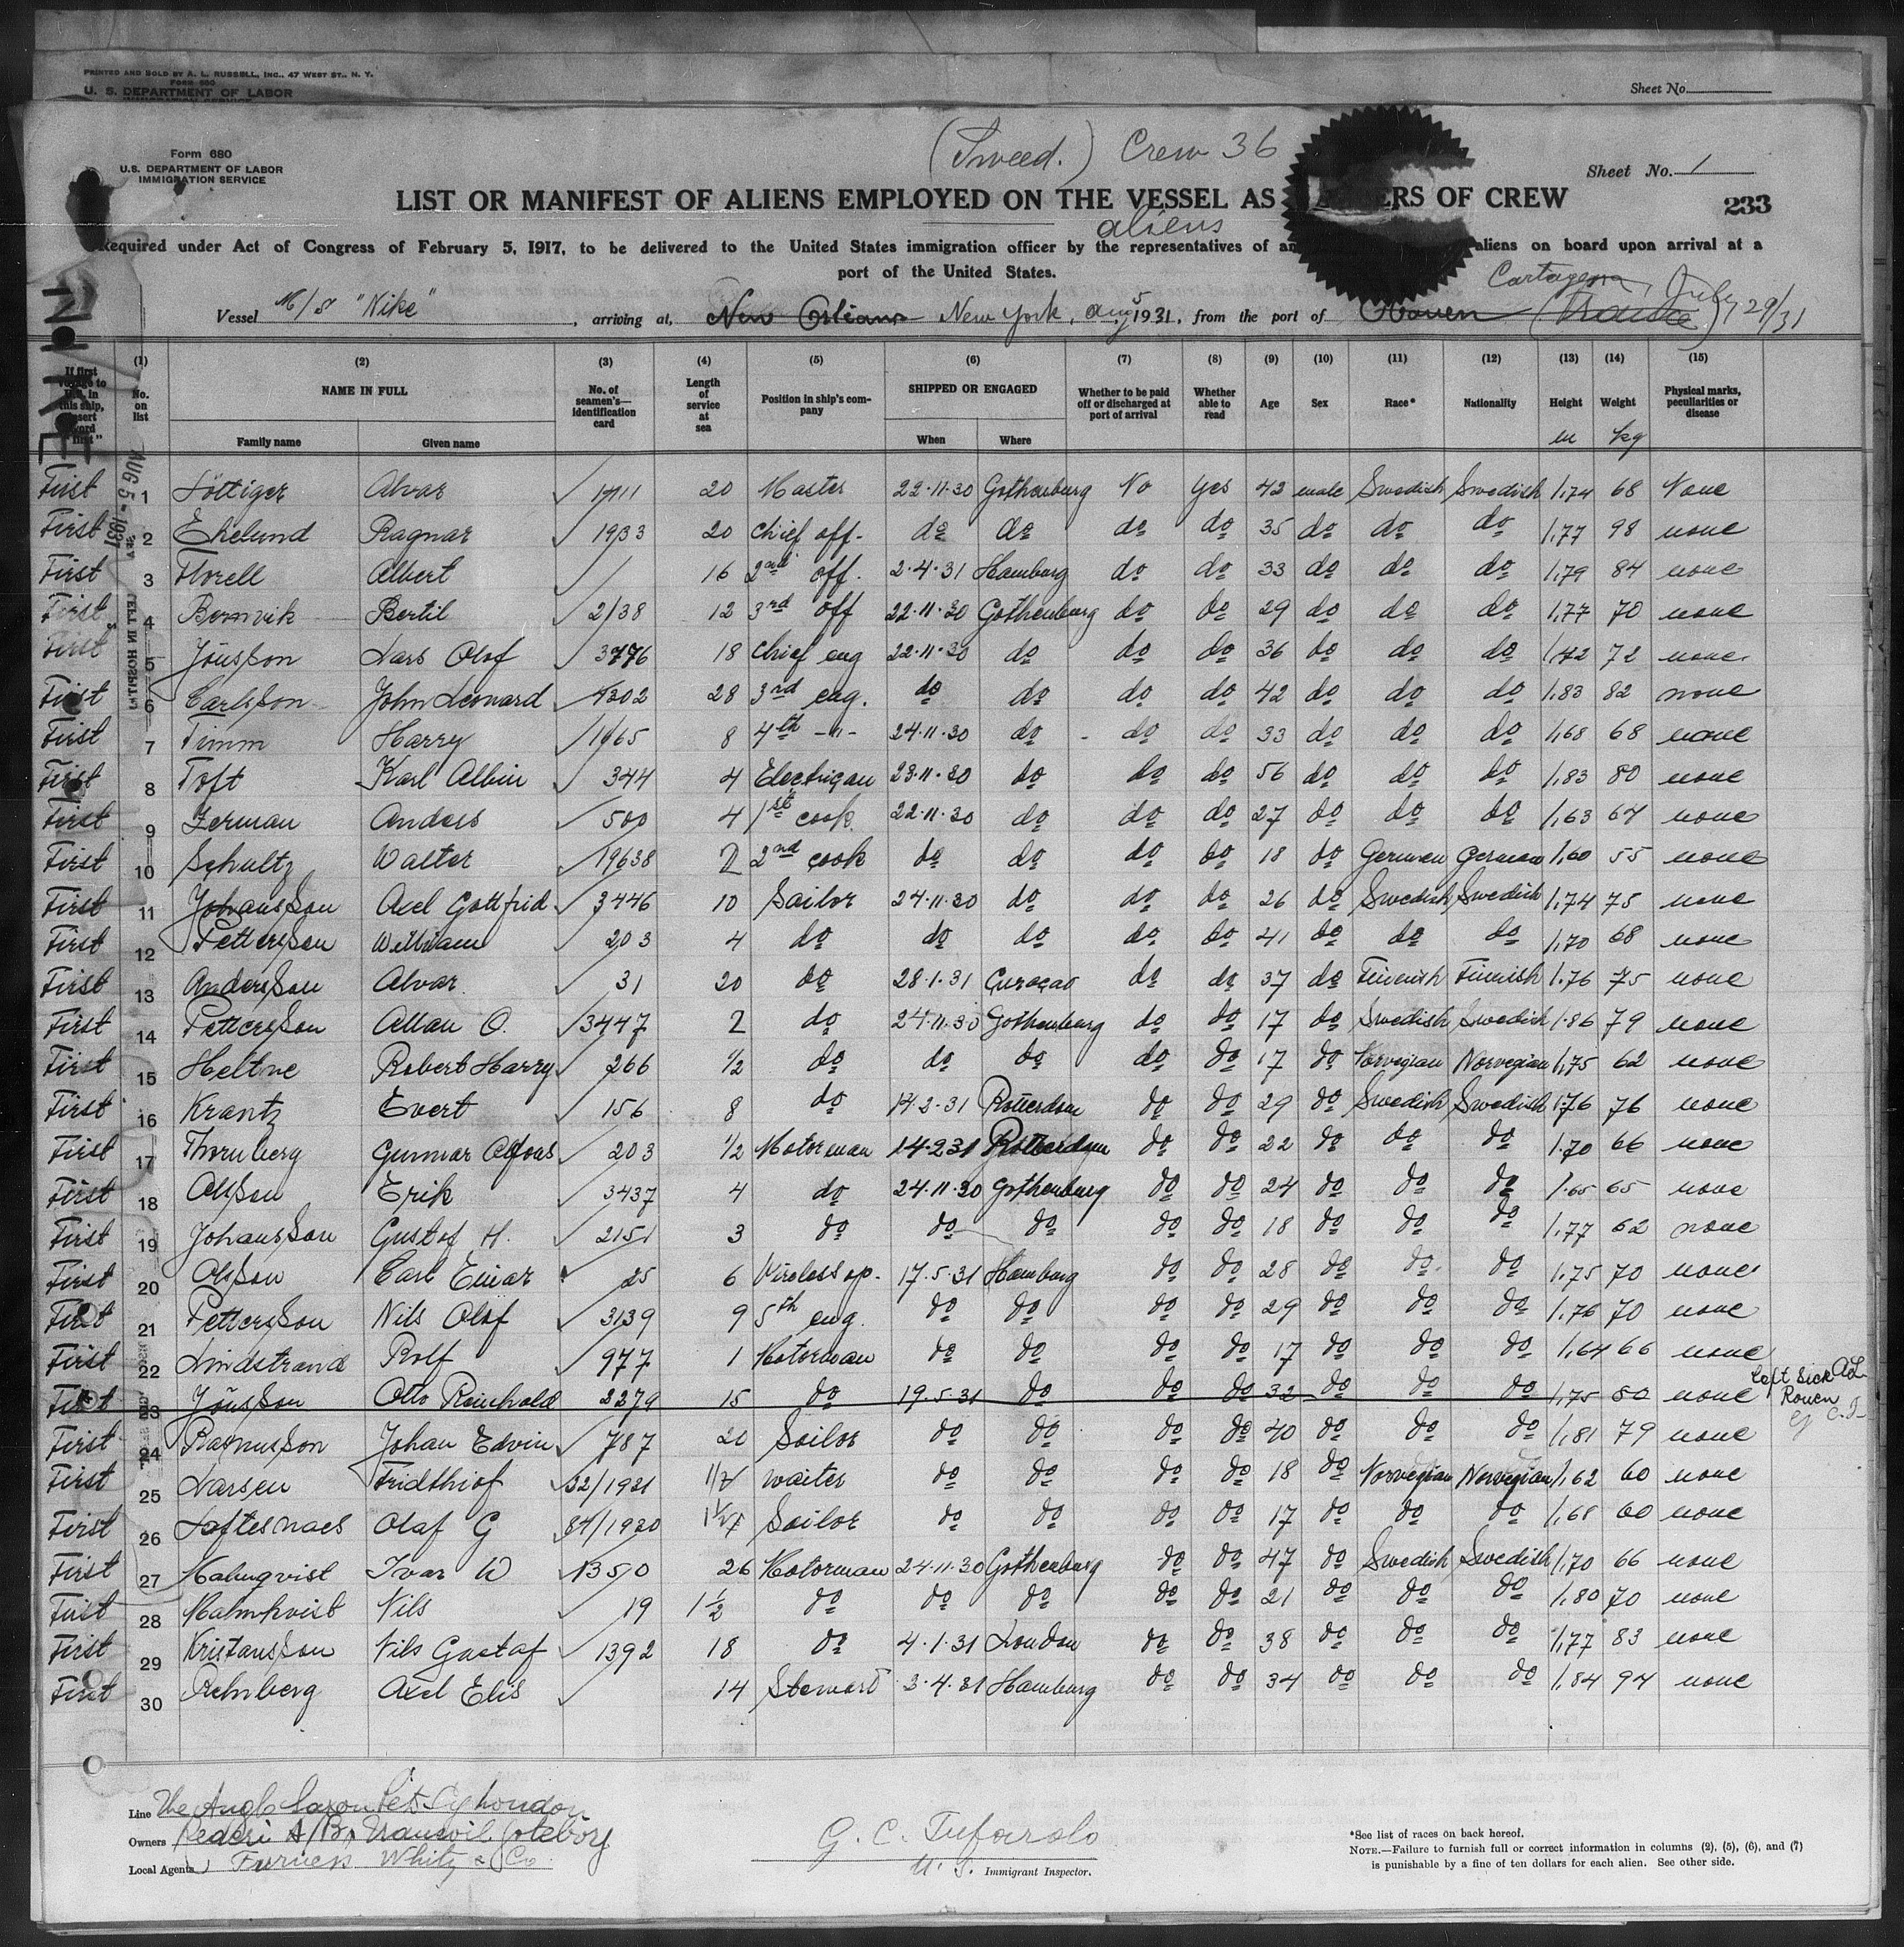 PRINTED AND SOLD BY A. L. RUSSELL, INC., 47 WEST ST., N. Y.
Form 680
U. S. DEPARTMENT OF LABOR
Sheet No.
(Swed.) Crew 36
Form 680
U.S. DEPARTMENT OF LABOR
IMMIGRATION SERVICE
Sheet No. 1
LIST OR MANIFEST OF ALIENS EMPLOYED ON THE VESSEL AS ERS OF CREW
233
aliens
Required under Act of Congress of February 5, 1917, to be delivered to the United States immigration officer by the representatives of an aliens on board upon arrival at a
port of the United States.
Cartagena, July 29/31
Vessel M/S "Nike", arriving at, New Orleans New York, Aug 5 1931, from the port of Rouen (France)
(1) (2) (3) (4) (5) (6) (7) (8) (9) (10) (11) (12) (13) (14) (15)
If first voyage to U.S. in this ship, insert word "first" No. on list NAME IN FULL Family name Given name No. of seamen's identification card Length of service at sea Position in ship's company SHIPPED OR ENGAGED When Where Whether to be paid off or discharged at port of arrival Whether able to read Age Sex Race* Nationality Height m Weight kg Physical marks, peculiarities or disease
AUG 5 - 1931
First 1 Löttiger Alvar 1711 20 Master 22.11.30 Gothenburg No Yes 42 male Swedish Swedish 1,74 68 None
First 2 Ekelund Ragnar 1933 20 chief off. do do do do 35 do do do 1,77 98 none
First 3 Florell Albert 16 2nd off. 2.4.31 Hamburg do do 33 do do do 1,79 84 none
First 4 Bernvik Bertil 2/38 12 3rd off 22.11.30 Gothenburg do do 29 do do do 1,77 70 none
First 5 Jönsson Lars Olof 3776 18 chief eng 22.11.30 do do do 36 do do do 1,72 72 none
First 6 Carlsson John Leonard 4302 28 3rd eng. do do do do 42 do do do 1,83 82 none
First 7 Timm Harry 1965 8 4th -"- 24.11.30 do do do 33 do do do 1,68 68 none
First 8 Toft Karl Albin 344 4 Electrican 23.11.30 do do do 56 do do do 1,83 80 none
First 9 Zerman Anders 500 4 1st cook 22.11.30 do do do 27 do do do 1,63 67 none
First 10 Schultz Walter 19638 2 2nd cook do do do do 18 do German German 1,60 55 none
First 11 Johansson Axel Gottfrid 3446 10 Sailor 24.11.30 do do do 26 do Swedish Swedish 1,74 75 none
First 12 Pettersson William 203 4 do do do do do 41 do do do 1,70 68 none
First 13 Andersson Alvar 31 20 do 28.1.31 Curaçao do do 37 do Finnish Finnish 1.76 75 none
First 14 Pettersson Allan O. 3447 2 do 24.11.30 Gothenburg do do 17 do Swedish Swedish 1.86 79 none
First 15 Heltne Robert Harry 266 1/2 do do do do do 17 do Norvegian Norvegian 1,75 62 none
First 16 Krantz Evert 156 8 do 14.2.31 Rotterdam do do 29 do Swedish Swedish 1.76 76 none
First 17 Thornberg Gunnar Alfons 203 1/2 Motorman 14.2.31 Rotterdam do do 22 do do do 1.70 66 none
First 18 Olsson Erik 3437 4 do 24.11.30 Gothenburg do do 24 do do do 1.65 65 none
First 19 Johansson Gustof H. 2151 3 do do do do do 18 do do do 1,77 62 none
First 20 Olsson Carl Einar 25 6 Wireless op. 17.5.31 Hamburg do do 28 do do do 1,75 70 none
First 21 Pettersson Nils Olof 3139 9 5th eng. do do do do 29 do do do 1,76 70 none
First 22 Lindstrand Rolf 977 1 Motorman do do do do 17 do do do 1,64 66 none
First 23 Jönsson Otto Reinhold 2279 15 do 19.5.31 do do do 32 do do do 1,75 80 none Left Sick Rouen
First 24 Rasmusson Johan Edvin 787 20 Sailor do do do do 40 do do do 1,81 79 none
First 25 Larsen Fridthiof 32/1931 waiter do do do do 18 do Norvegian Norvegian 1,62 60 none
First 26 Loftesnaes Olaf G 84/1930 Sailor do do do do 17 do do do 1,68 60 none
First 27 Malmqvist Ivar W 1350 26 Motorman 24.11.30 Gothenburg do do 47 do Swedish Swedish 1,70 66 none
First 28 Malmkvist Nils 19 1 1/2 do do do do do 21 do do do 1,80 70 none
First 29 Kristansson Nils Gustaf 1392 18 do 4.1.31 London do do 38 do do do 1,77 83 none
First 30 Rehnberg Axel Elis 14 Steward 3.4.31 Hamburg do do 34 do do do 1,84 94 none
Line The Anglo Saxon Pet. Cy London
Owners Rederi A/B. Transoil Göteborg
Local Agents Furness Whity & Co.
G. C. Tufarolo
U. S. Immigrant Inspector.
*See list of races on back hereof.
NOTE.—Failure to furnish full or correct information in columns (2), (5), (6), and (7)
is punishable by a fine of ten dollars for each alien. See other side.